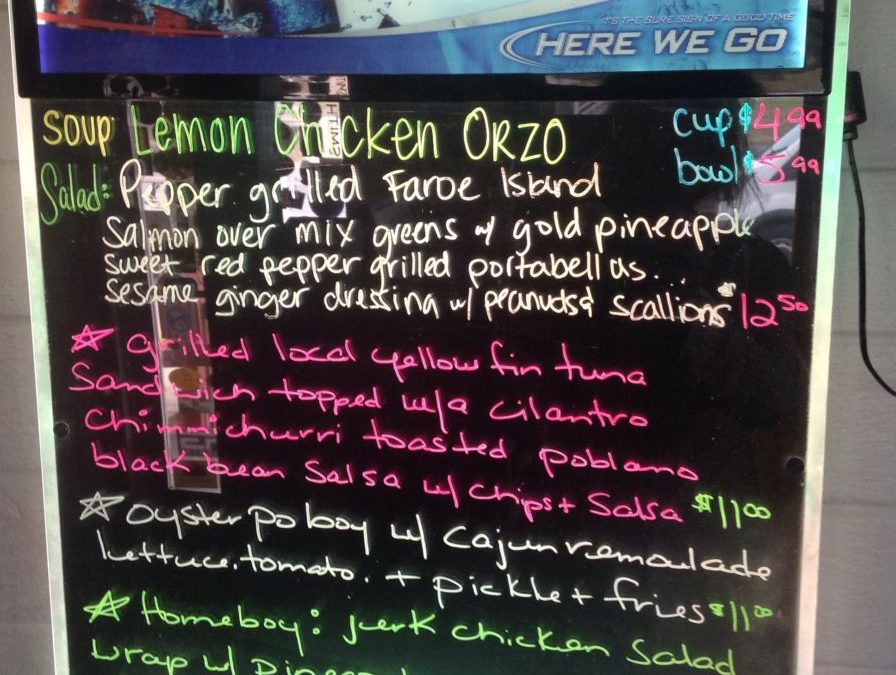 IT'S THE SURE SIGN OF A GOOD TIME
HERE WE GO
SOUP Lemon Chicken ORZO cup $4.99
bowl $5.99
Salad: Pepper grilled Faroe Island
Salmon over mix greens w/ gold pineapple
sweet red pepper grilled portabellas...
sesame ginger dressing w/ peanuds & scallions $12.50
☆ grilled local yellow fin tuna
Sandwich topped w/a cilantro
chimmichurri toasted poblano
black bean Salsa w/ chips + Salsa $11.00
☆ oyster po boy w/ Cajun remoulade
lettuce.tomato. + pickle + fries $11.00
☆ Homeboy: jerk chicken Salad
wrap w/